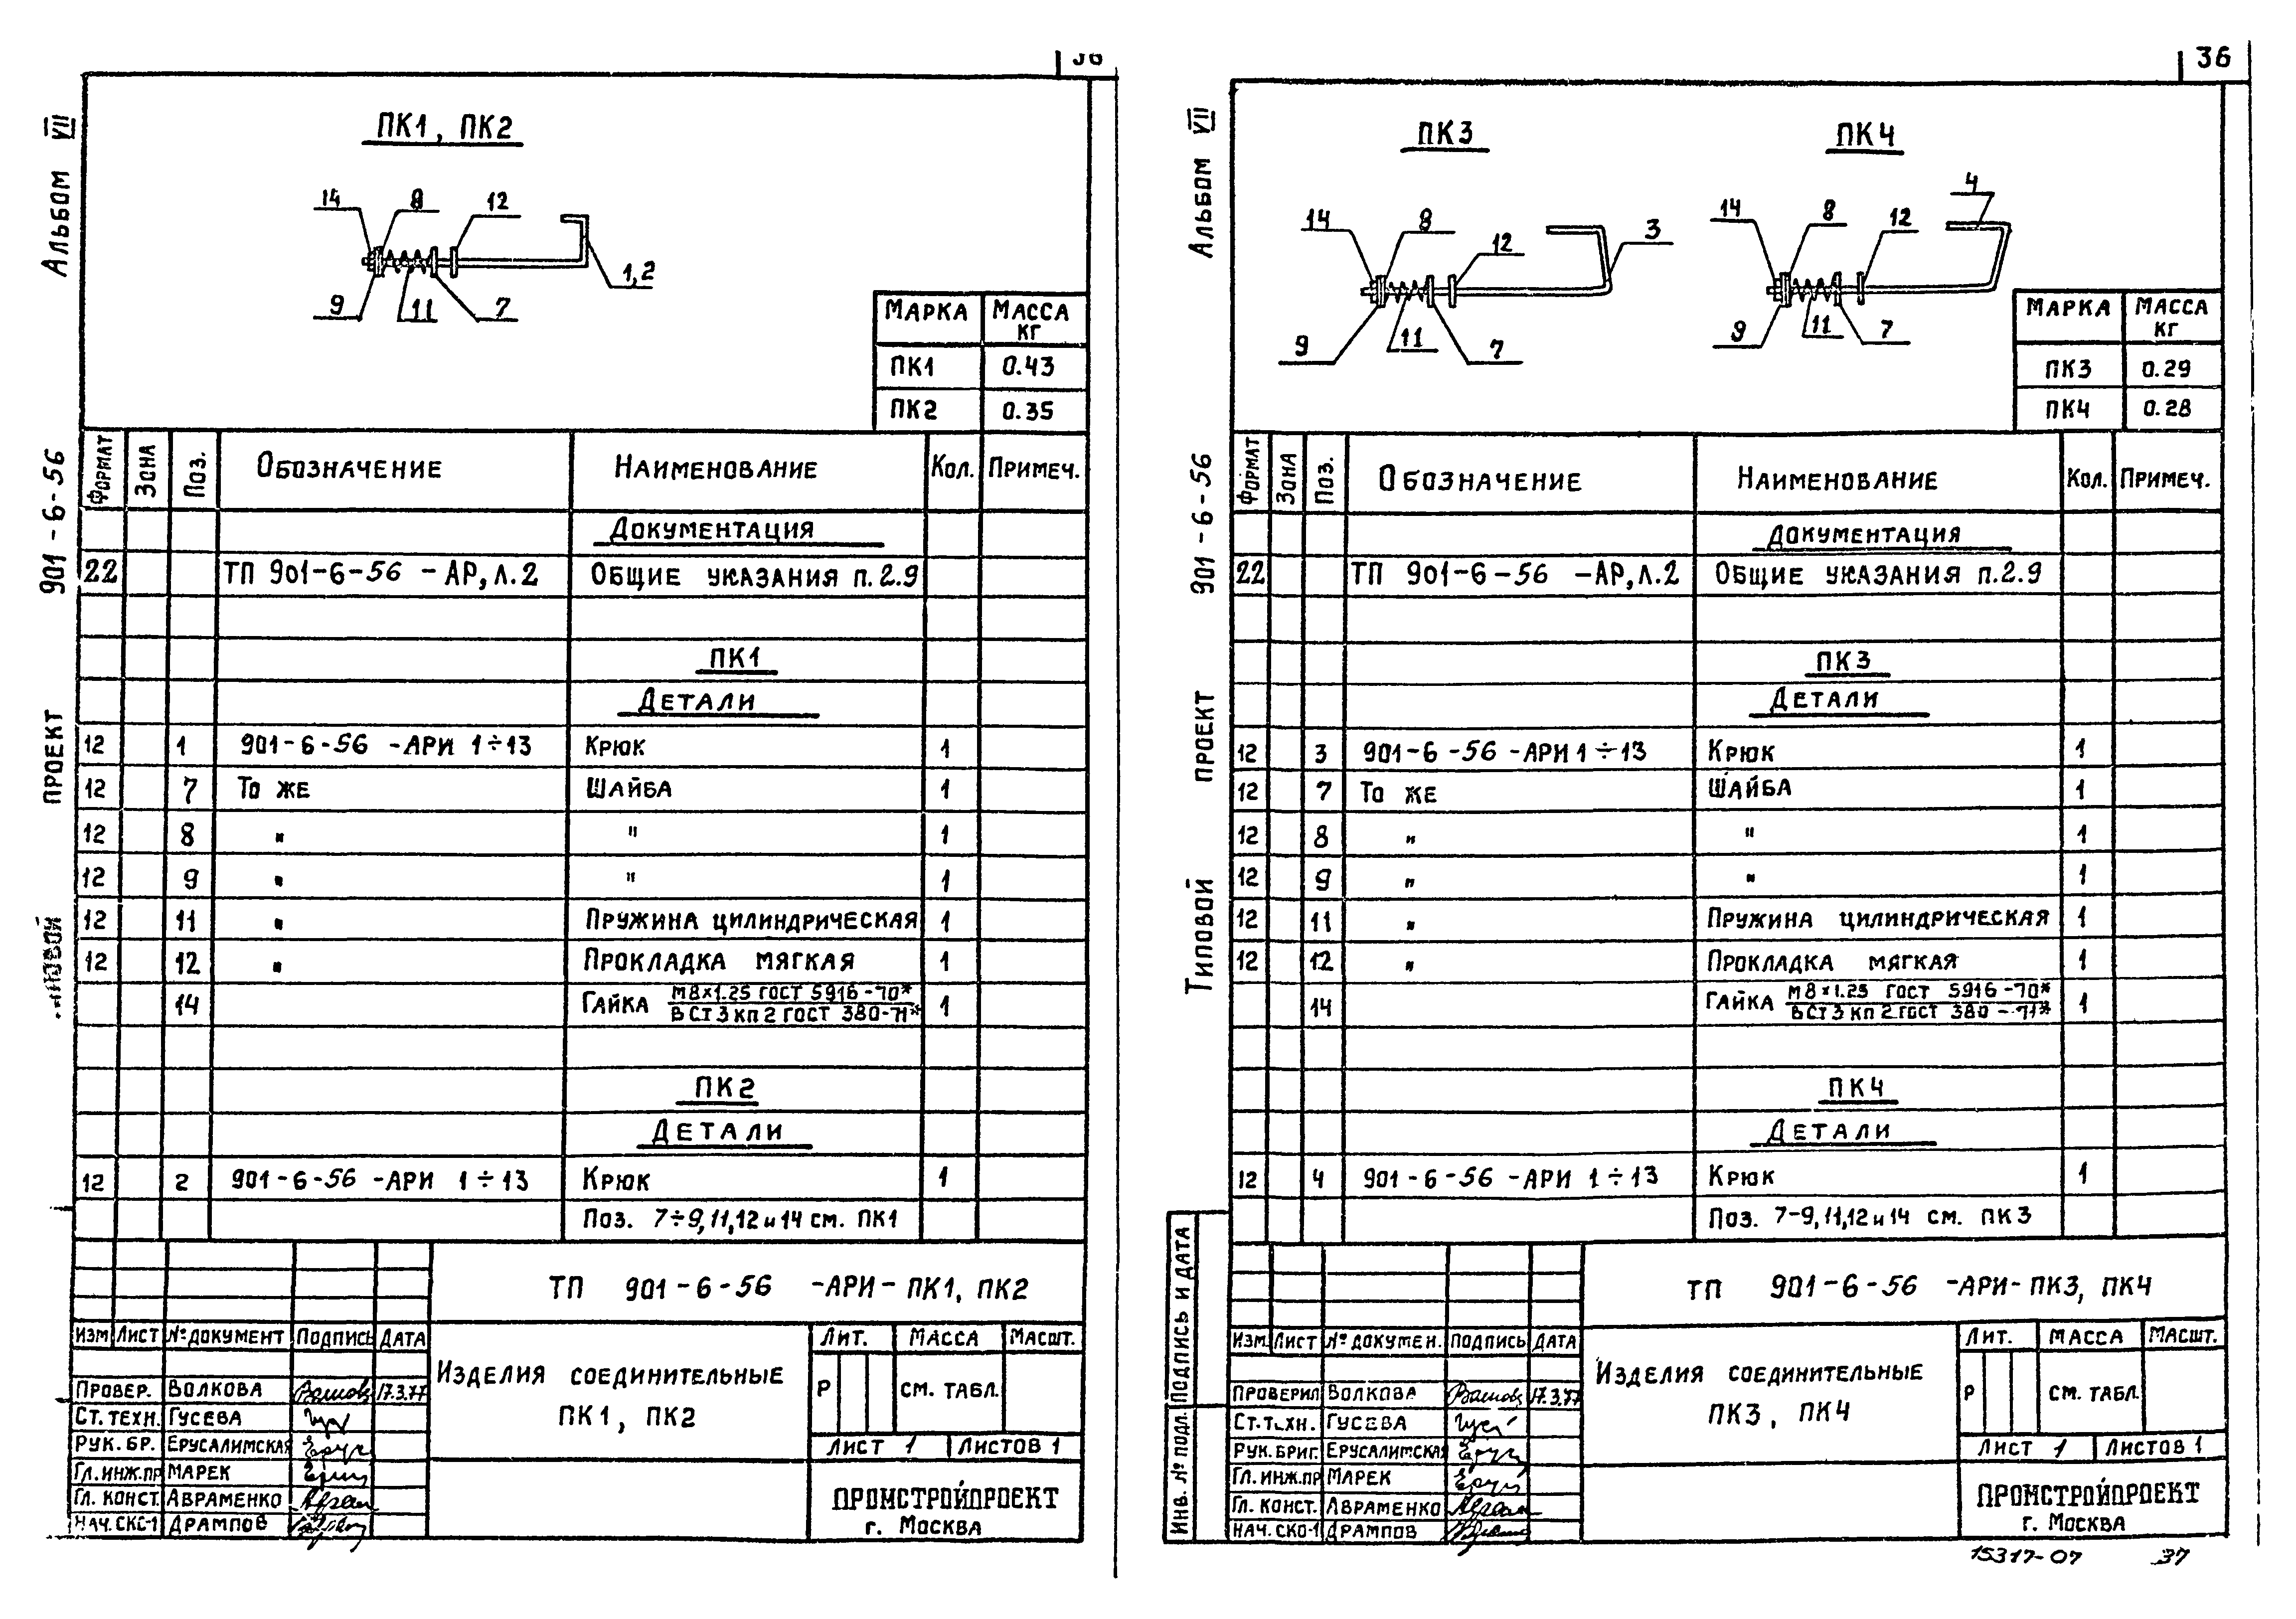 36
Альбом VII
901-6-56
ПРОЕКТ
ПК1, ПК2
14 8 12
1,2
9 11 7
МАРКА МАССА КГ
ПК1 0.43
ПК2 0.35
ФОРМАТ ЗОНА ПОЗ. ОБОЗНАЧЕНИЕ НАИМЕНОВАНИЕ КОЛ. ПРИМЕЧ.
ДОКУМЕНТАЦИЯ
22 ТП 901-6-56 -АР, Л.2 ОБЩИЕ УКАЗАНИЯ П.2.9
ПК1
ДЕТАЛИ
12 1 901-6-56 -АРИ 1÷13 КРЮК 1
12 7 ТО ЖЕ ШАЙБА 1
12 8 " " 1
12 9 " " 1
12 11 " ПРУЖИНА ЦИЛИНДРИЧЕСКАЯ 1
12 12 " ПРОКЛАДКА МЯГКАЯ 1
14 ГАЙКА М8×1.25 ГОСТ 5916-70* 1
ВСТ3 КП2 ГОСТ 380-71*
ПК2
ДЕТАЛИ
12 2 901-6-56 -АРИ 1÷13 КРЮК 1
ПОЗ. 7÷9,11,12 и 14 СМ. ПК1
ТП 901-6-56 -АРИ- ПК1, ПК2
ИЗМ ЛИСТ № ДОКУМЕНТ ПОДПИСЬ ДАТА
ПРОВЕР. ВОЛКОВА 17.3.77
СТ. ТЕХН. ГУСЕВА
РУК. БР. ЕРУСАЛИМСКАЯ
ГЛ. ИНЖ.ПР МАРЕК
ГЛ. КОНСТ. АВРАМЕНКО
НАЧ. СКС-1 ДРАМПОВ
ИЗДЕЛИЯ СОЕДИНИТЕЛЬНЫЕ
ПК1, ПК2
ЛИТ. МАССА МАСШТ.
Р СМ. ТАБЛ.
ЛИСТ 1 ЛИСТОВ 1
ПРОМСТРОЙПРОЕКТ
г. МОСКВА
36
Альбом VII
901-6-56
ПРОЕКТ
ТИПОВОЙ
ПОДПИСЬ И ДАТА
ИНВ. № ПОДЛ.
ПК3
14 8 12 3
9 11 7
ПК4
4
14 8 12
9 11 7
МАРКА МАССА КГ
ПК3 0.29
ПК4 0.28
ФОРМАТ ЗОНА ПОЗ. ОБОЗНАЧЕНИЕ НАИМЕНОВАНИЕ КОЛ. ПРИМЕЧ.
ДОКУМЕНТАЦИЯ
22 ТП 901-6-56 -АР, Л.2 ОБЩИЕ УКАЗАНИЯ П.2.9
ПК3
ДЕТАЛИ
12 3 901-6-56 -АРИ 1÷13 КРЮК 1
12 7 ТО ЖЕ ШАЙБА 1
12 8 " " 1
12 9 " " 1
12 11 " ПРУЖИНА ЦИЛИНДРИЧЕСКАЯ 1
12 12 " ПРОКЛАДКА МЯГКАЯ 1
14 ГАЙКА М8×1.25 ГОСТ 5916-70* 1
ВСТ3 КП2 ГОСТ 380-71*
ПК4
ДЕТАЛИ
12 4 901-6-56 -АРИ 1÷13 КРЮК 1
ПОЗ. 7-9,11,12 и 14 СМ. ПК3
ТП 901-6-56 -АРИ- ПК3, ПК4
ИЗМ. ЛИСТ № ДОКУМЕН. ПОДПИСЬ ДАТА
ПРОВЕРИЛ ВОЛКОВА 17.3.77
СТ. ТЕХН. ГУСЕВА
РУК. БРИГ. ЕРУСАЛИМСКАЯ
ГЛ. ИНЖ.ПР МАРЕК
ГЛ. КОНСТ. АВРАМЕНКО
НАЧ. СКО-1 ДРАМПОВ
ИЗДЕЛИЯ СОЕДИНИТЕЛЬНЫЕ
ПК3, ПК4
ЛИТ. МАССА МАСШТ.
Р СМ. ТАБЛ.
ЛИСТ 1 ЛИСТОВ 1
ПРОМСТРОЙПРОЕКТ
г. МОСКВА
15317-07 37